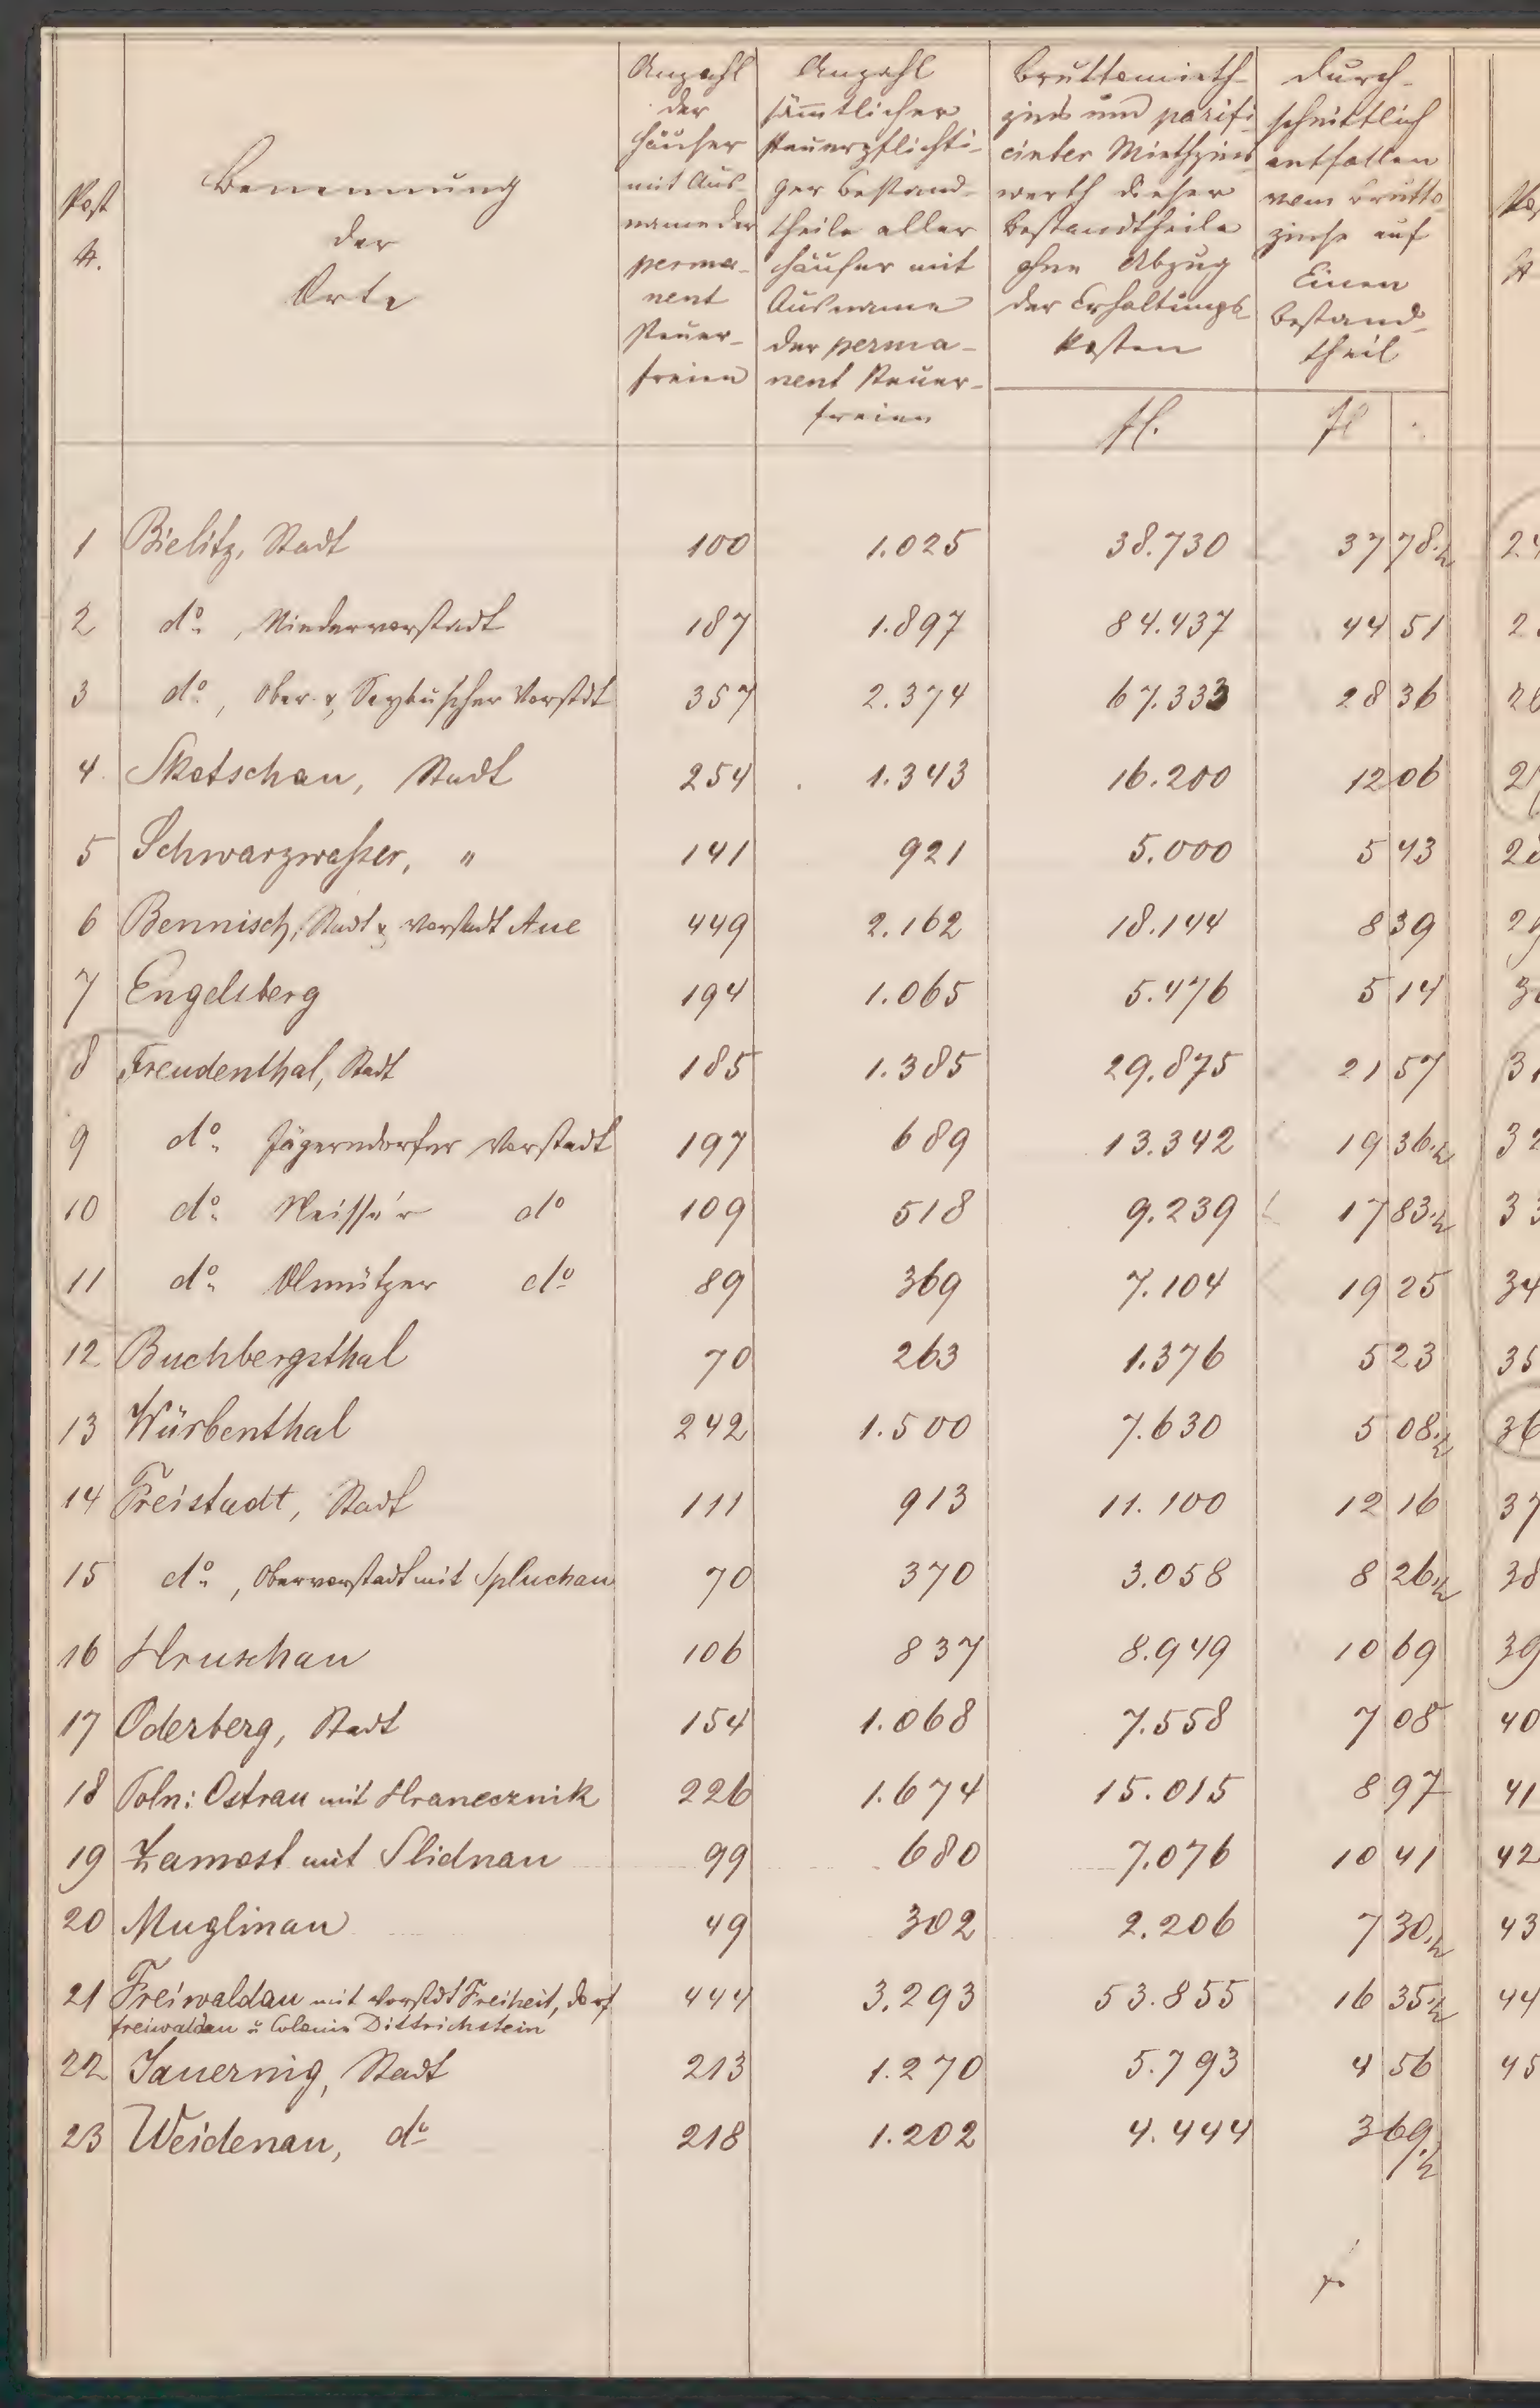 Post
N.
Benennung
der
Orte
Anzahl
der
Häuser
mit Aus-
name der
perma-
nent
Steuer-
freien
Anzahl
sämmtlicher
steuerpflichti-
ger Bestand-
theile aller
Häuser mit
Ausname
der perma-
nent Steuer-
freien
Bruttomieth-
zins und parifi-
cirter Miethzins
werth dieser
Bestandtheile
ohne Abzug
der Erhaltungs-
kosten
fl.
durch-
schnittlich
entfallen
vom Brutto-
zinse auf
Einen
Bestand-
theil
fl
1 Bielitz, Stadt 100 1.025 38.730 37 78·½
2 do , Niedervorstadt 187 1.897 84.437 44 51
3 do , Ober- & Saybuscher Vorstdt 357 2.374 67.333 28 36
4 Skotschau, Stadt 254 1.343 16.200 12 06
5 Schwarzwaßer, " 141 921 5.000 5 43
6 Bennisch, Stadt & Vorstadt Aue 449 2.162 18.144 8 39
7 Engelsberg 194 1.065 5.476 5 14
8 Freudenthal, Stadt 185 1.385 29.875 21 57
9 do Jägerndorfer Vorstadt 197 689 13.342 19 36·½
10 do Neisse'r do 109 518 9.239 17 83·½
11 do Olmützer do 89 369 7.104 19 25
12 Buchbergsthal 70 263 1.376 5 23
13 Würbenthal 242 1.500 7.630 5 08·½
14 Freistadt, Stadt 111 913 11.100 12 16
15 do , Obervorstadt mit Spluchau 70 370 3.058 8 26·½
16 Hruschau 106 837 8.949 10 69
17 Oderberg, Stadt 154 1.068 7.558 7 08
18 Poln: Ostrau mit Hranecznik 226 1.674 15.015 8 97
19 Zamost mit Slidnau 99 680 7.076 10 41
20 Muglinau 49 302 2.206 7 30·½
21 Freiwaldau mit Vorstdt Freiheit, Dorf 444 3.293 53.855 16 35·½
Freiwaldau u Colonie Dittrichstein
22 Jauernig, Stadt 213 1.270 5.793 4 56
23 Weidenau, do 218 1.202 4.444 3 69·½
32
34
35
37
38
39
40
41
42
43
44
45